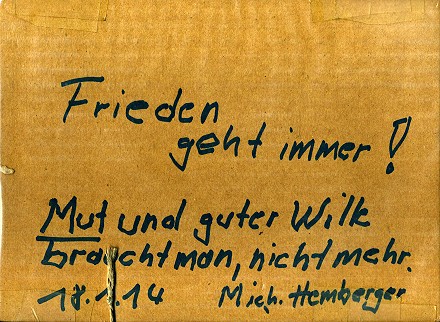 Frieden
geht immer!
Mut und guter Wille
braucht man, nicht mehr.
14 Mich. Hemberger